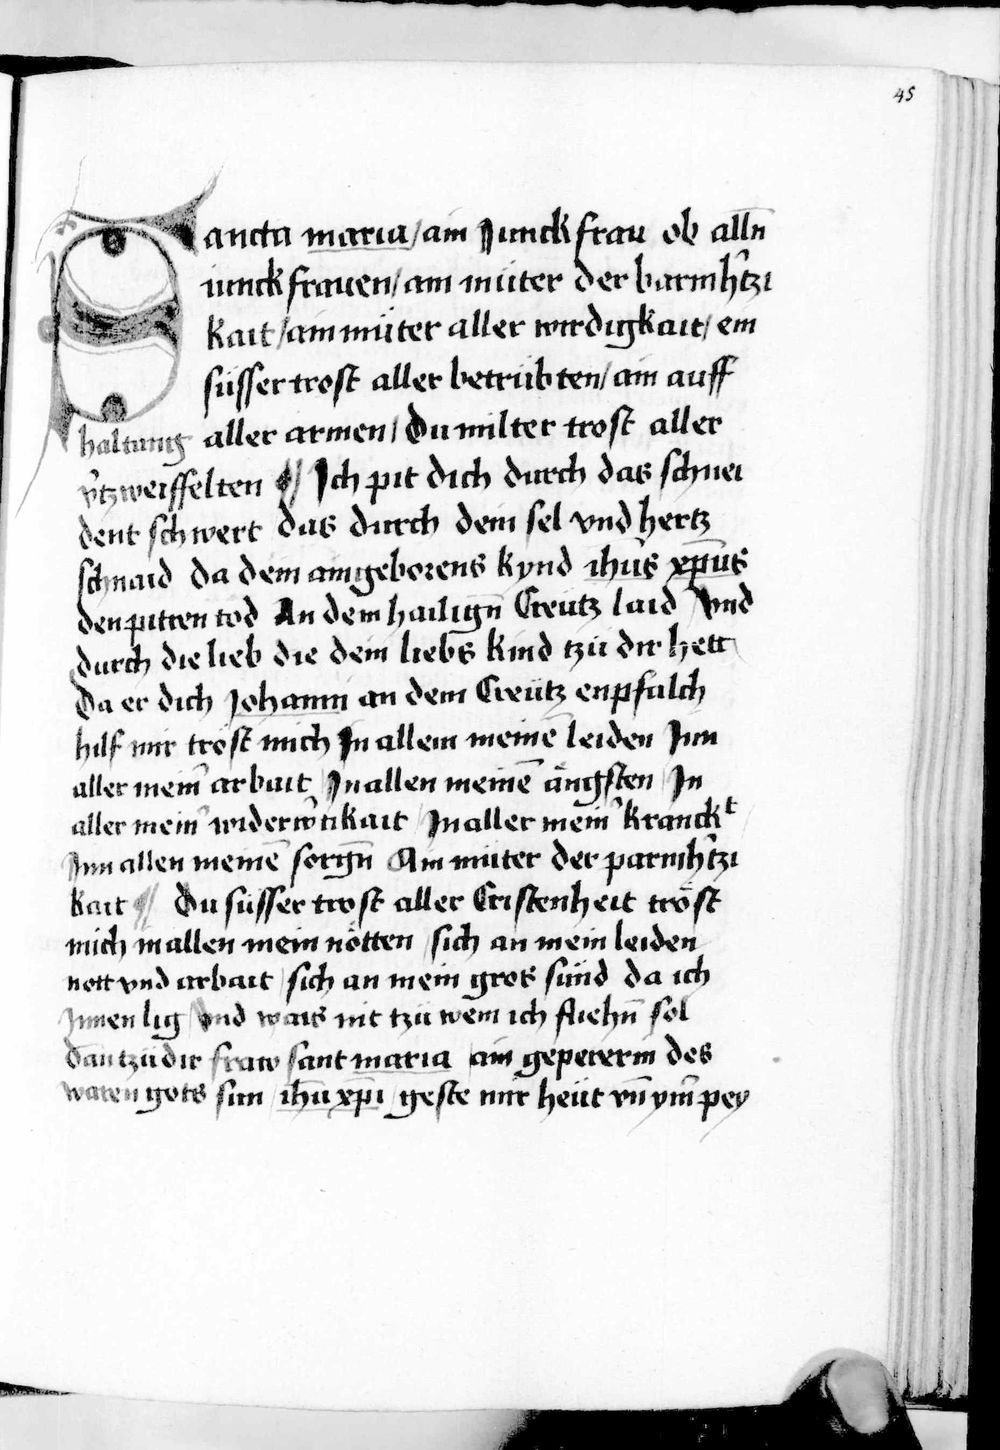 45
Sancta maria / ain Junckfrau ob alln̄
iunckfrauen / am müter der barmh̉tzi
kait / ain müter aller wirdigkait / em
süsser trost aller betrübten / ain auff
haltung aller armen / Du milter trost aller
v̉tzweiffelten ¶ Ich pit dich durch das schnei
dent schwert das durch dein sel vnd hertz
schnaid da dem aingeborens kynd ih̄us xp̄us
den pitten tod An dem hailign̄ Creütz laid Vnd
durch die lieb die dein liebs kind tzü dir hett
Da er dich Johanni an dem Creütz enpfalch
hilf mir tröst mich In allem meinē leiden Inn
aller mein̉ arbait / In allen meinē ängsten / In
aller mein̉ widerw̉tikait / In aller mein̉ kranckᵗ
Inn allen meinē sorgn̄ Ain müter der parmh̉tzi
kait ¶ Du süsser trost aller Cristenheit tröst
mich in allen mein nötten / sich an mein leiden
nott vnd arbait / sich an mein gros sünd da ich
Innen lig / Vnd wais nit tzü wem ich fliehn̄ sol
dan tzü dir fraw sant maria / ain gepererin des
waren gots sun / ih̄u xp̄i / geste mir heüt vn̄ ym̉ pey